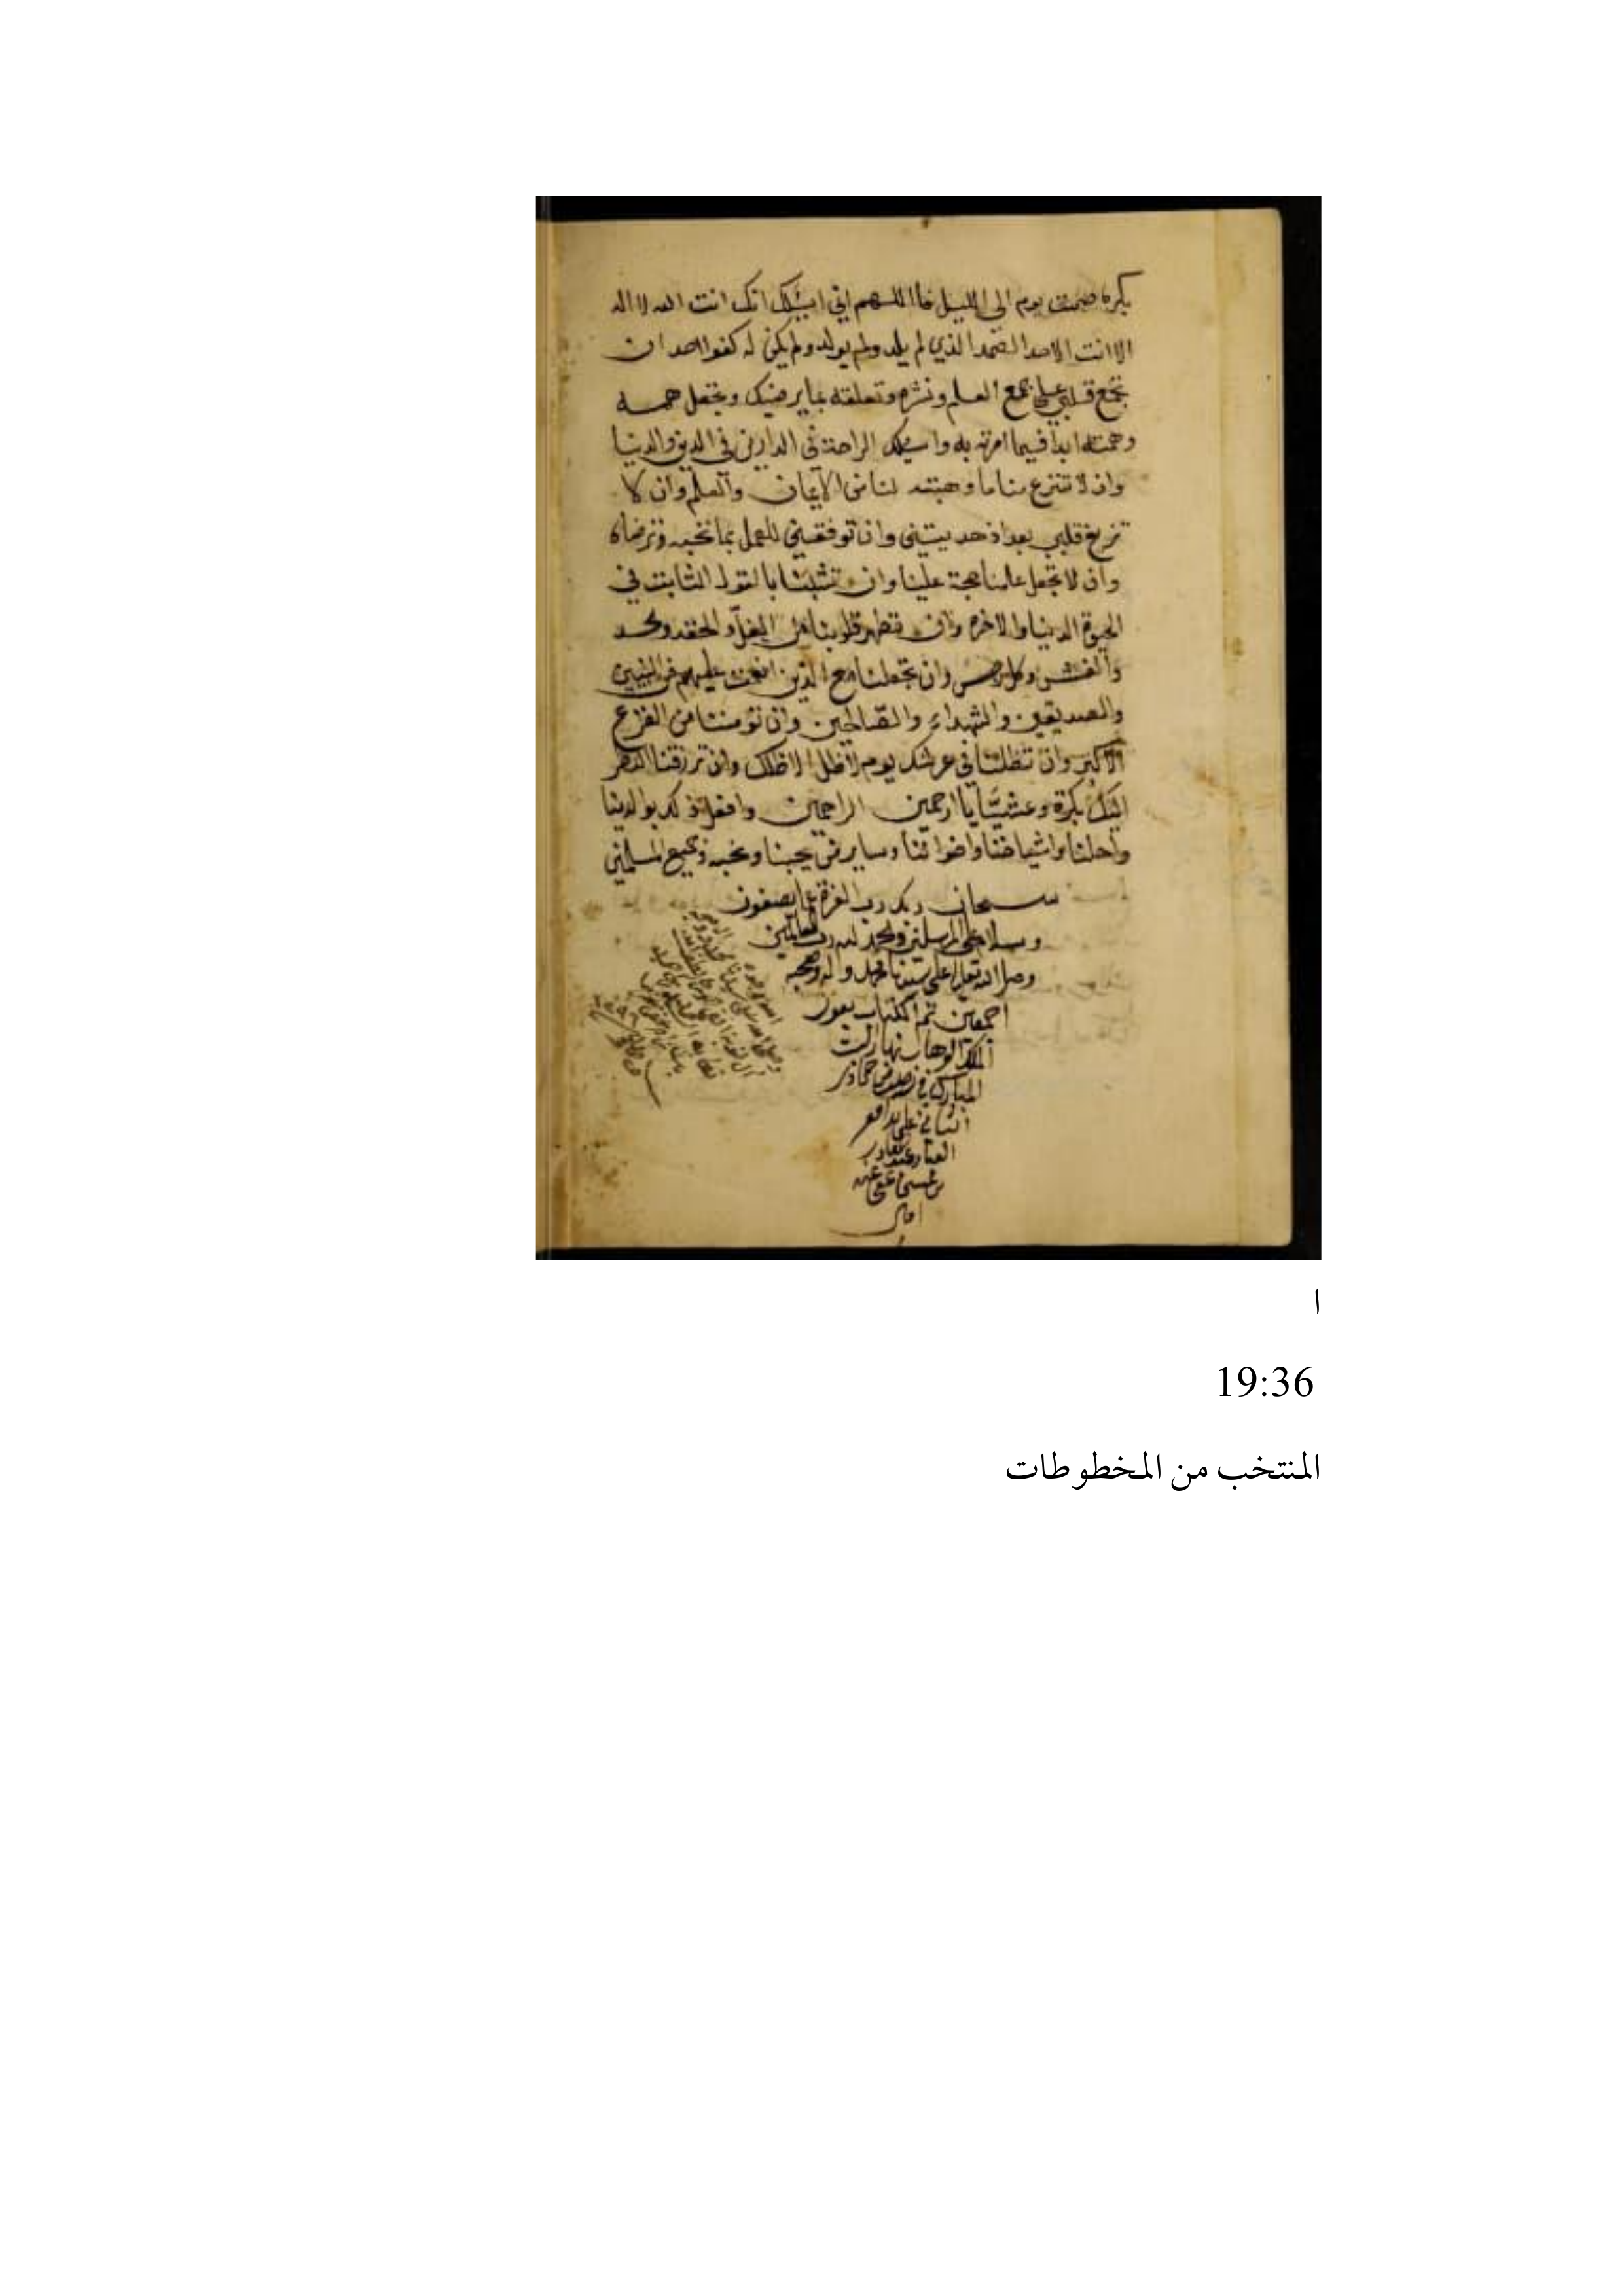 بكرة صمت يوم الى الليل فاا اللهم اني اسئلك انك انت الله لا اله
الا انت الاحد الصمد الذي لم يلد ولم يولد ولم يكن له كفوا احد ان
تجمع قلبي على جمع العلم ونشره وتعلقه بما يرضيك وتجعل همه
وهمته ابدا فيما امرته به واسئلك الراحة في الدارين في الدين والدنيا
وان لا تنزع منا ما وهبته لنا من الايمان والعلم وان لا
تزيغ قلبي بعد اذ هديتني وان توفقني للعمل بما تحبه وترضاه
وان لا تجعل علمنا حجة علينا وان تثبتنا بالقول الثابت في
الحيوة الدنيا والاخرة وان تطهر قلوبنا من الغل والحقد والحسد
والغش وكل وان تجعلنا مع الذين انعمت عليهم من النبيين
والصديقين والشهداء والصالحين وان تؤمننا من الفزع
الاكبر وان تظلنا في عرشك يوم لا ظل الا ظلك وان ترزقنا
بكرة وعشيا يا ارحم الراحمين وافعل ذلك بوالدينا
واهلنا واشياخنا واخواننا وساير من يحبنا ونحبه وجميع المسلمين
سبحان ربك رب العزة عما يصفون
وسلام على المرسلين والحمد لله رب العالمين
وصلى الله تعالى على سيدنا محمد واله وصحبه
اجمعين تم الكتاب بعون
الملك الوهاب نهار
المبارك في من جماد
الثاني على يد افقر
العباد عبد القادر
بن عفي عنه
امين
ا
19:36
المنتخب من المخطوطات